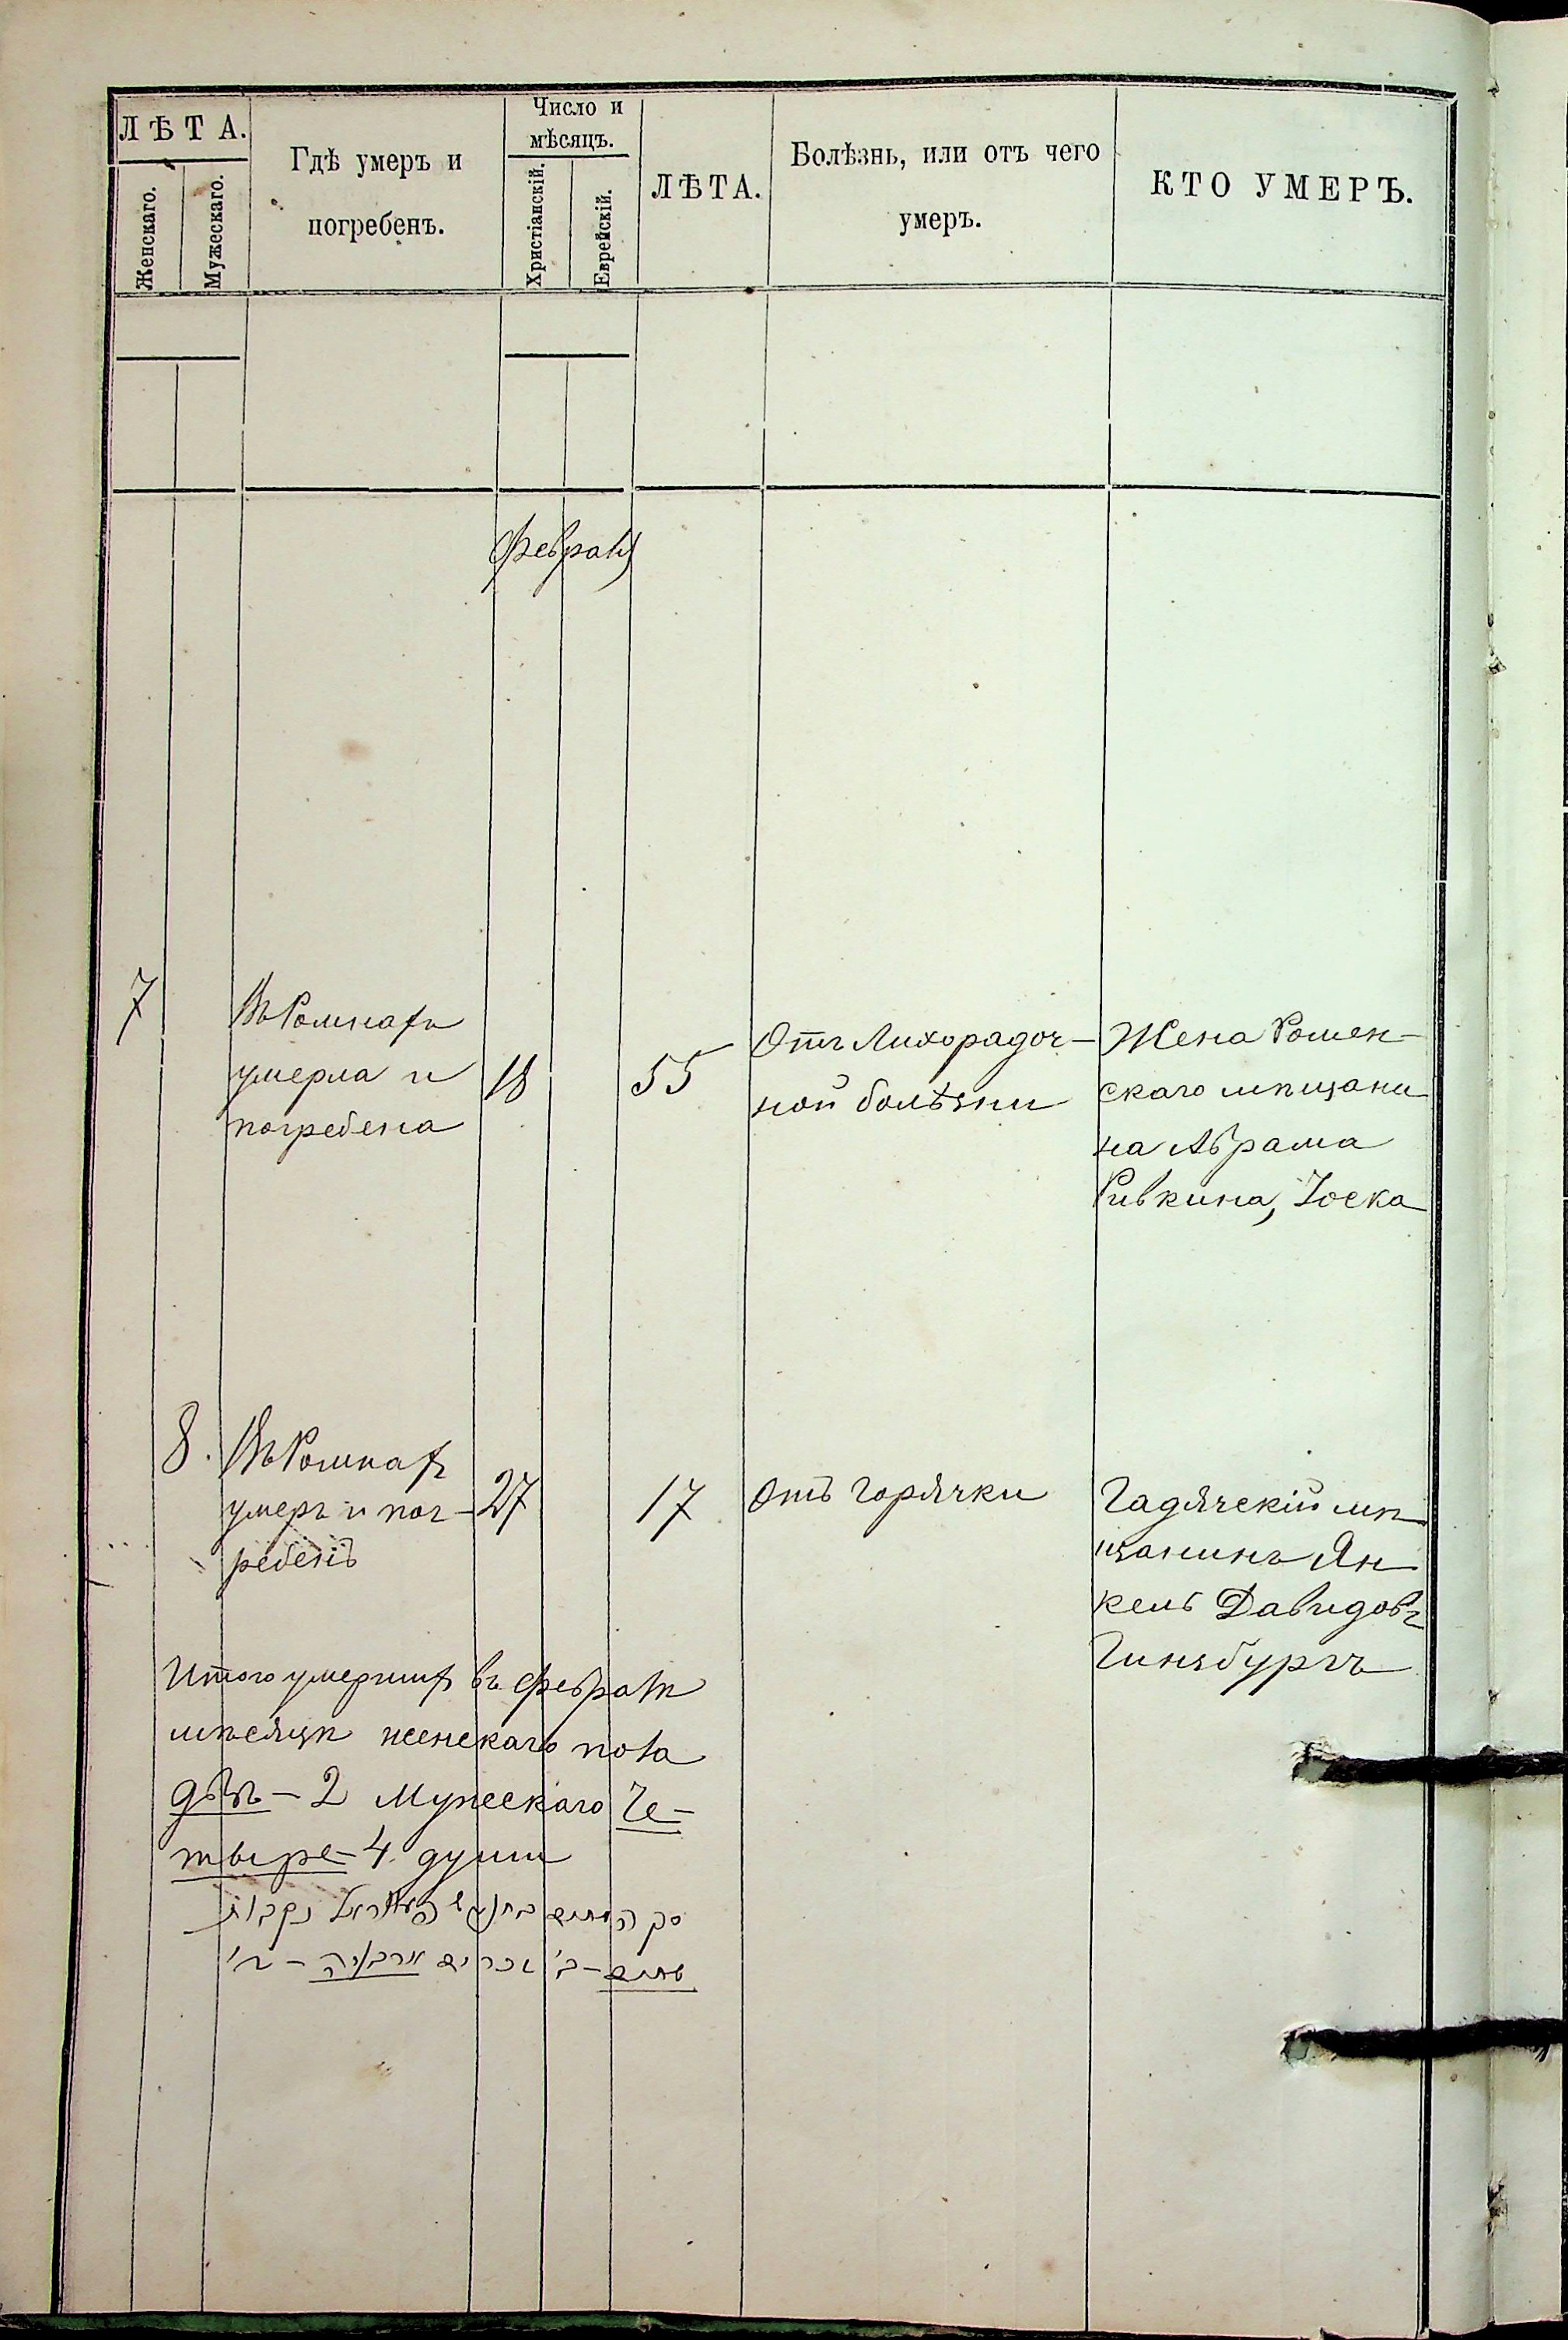 ЛѢТА.
Женскаго.
Мужескаго.
Гдѣ умеръ и
погребенъ.
Число и
мѣсяцъ.
Христіанскій.
Еврейскій.
ЛѢТА.
Болѣзнь, или отъ чего
умеръ.
КТО УМЕРЪ.
Февраля
7
Въ Ромнахъ
умерла и
погребена
18
55
Отъ Лихорадоч-
ной болѣзни
Жена Ромен-
скаго мѣщани
на Абрама
Ривкина, Іоска
8.
Въ Ромнахъ
умеръ и пог-
ребенъ
27
17
Отъ горячки
Гадячскій мѣ
щанинъ Ян
кель Давидовъ
Гинзбургъ
Итого умершихъ въ Февралѣ
мѣсяцѣ женскаго пола
двѣ - 2 Мужескаго Че-
тыре - 4 души
סך המתים בחדש פעווראל נקבות
שתים - ב' זכרים ארבעה - ד'